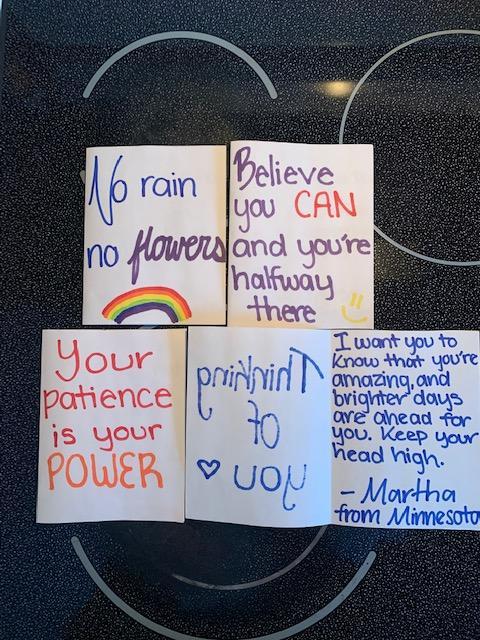 No rain
no flowers
Believe
you CAN
and you're
halfway
there
Your
patience
is your
POWER
Thinking
of
you
I want you to
know that you're
amazing, and
brighter days
are ahead for
you. Keep your
head high.
- Martha
from Minnesota